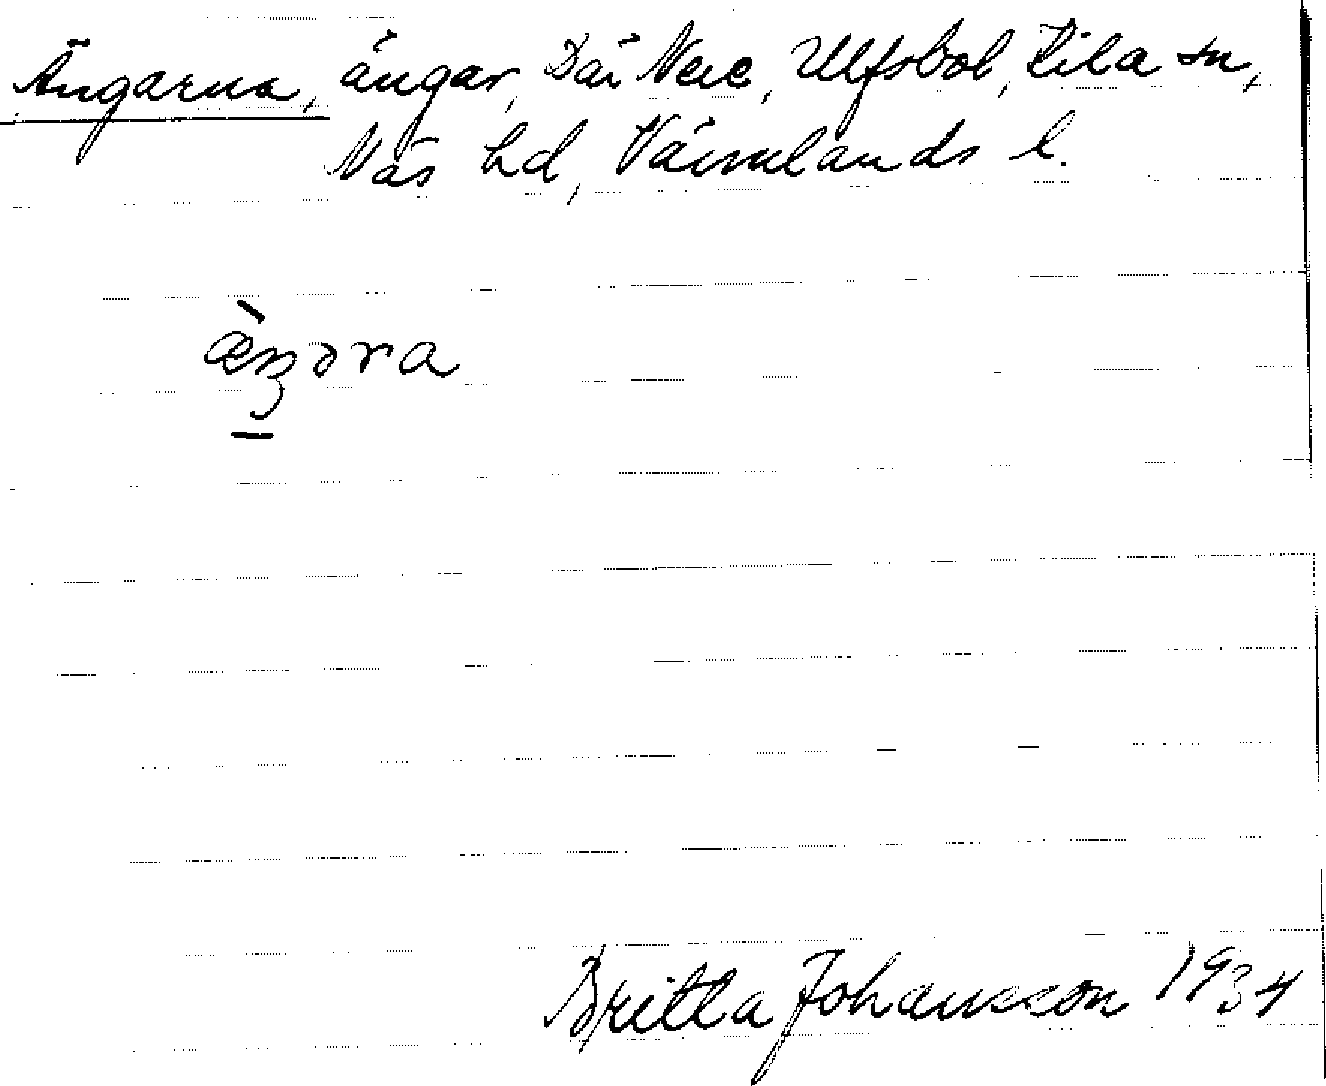 Ängarna, ängar, Där Nere, Ulfsbol, Kila sn,
Näs hd, Värmlands l.
æ̀ŋəra
Britta Johansson 1934